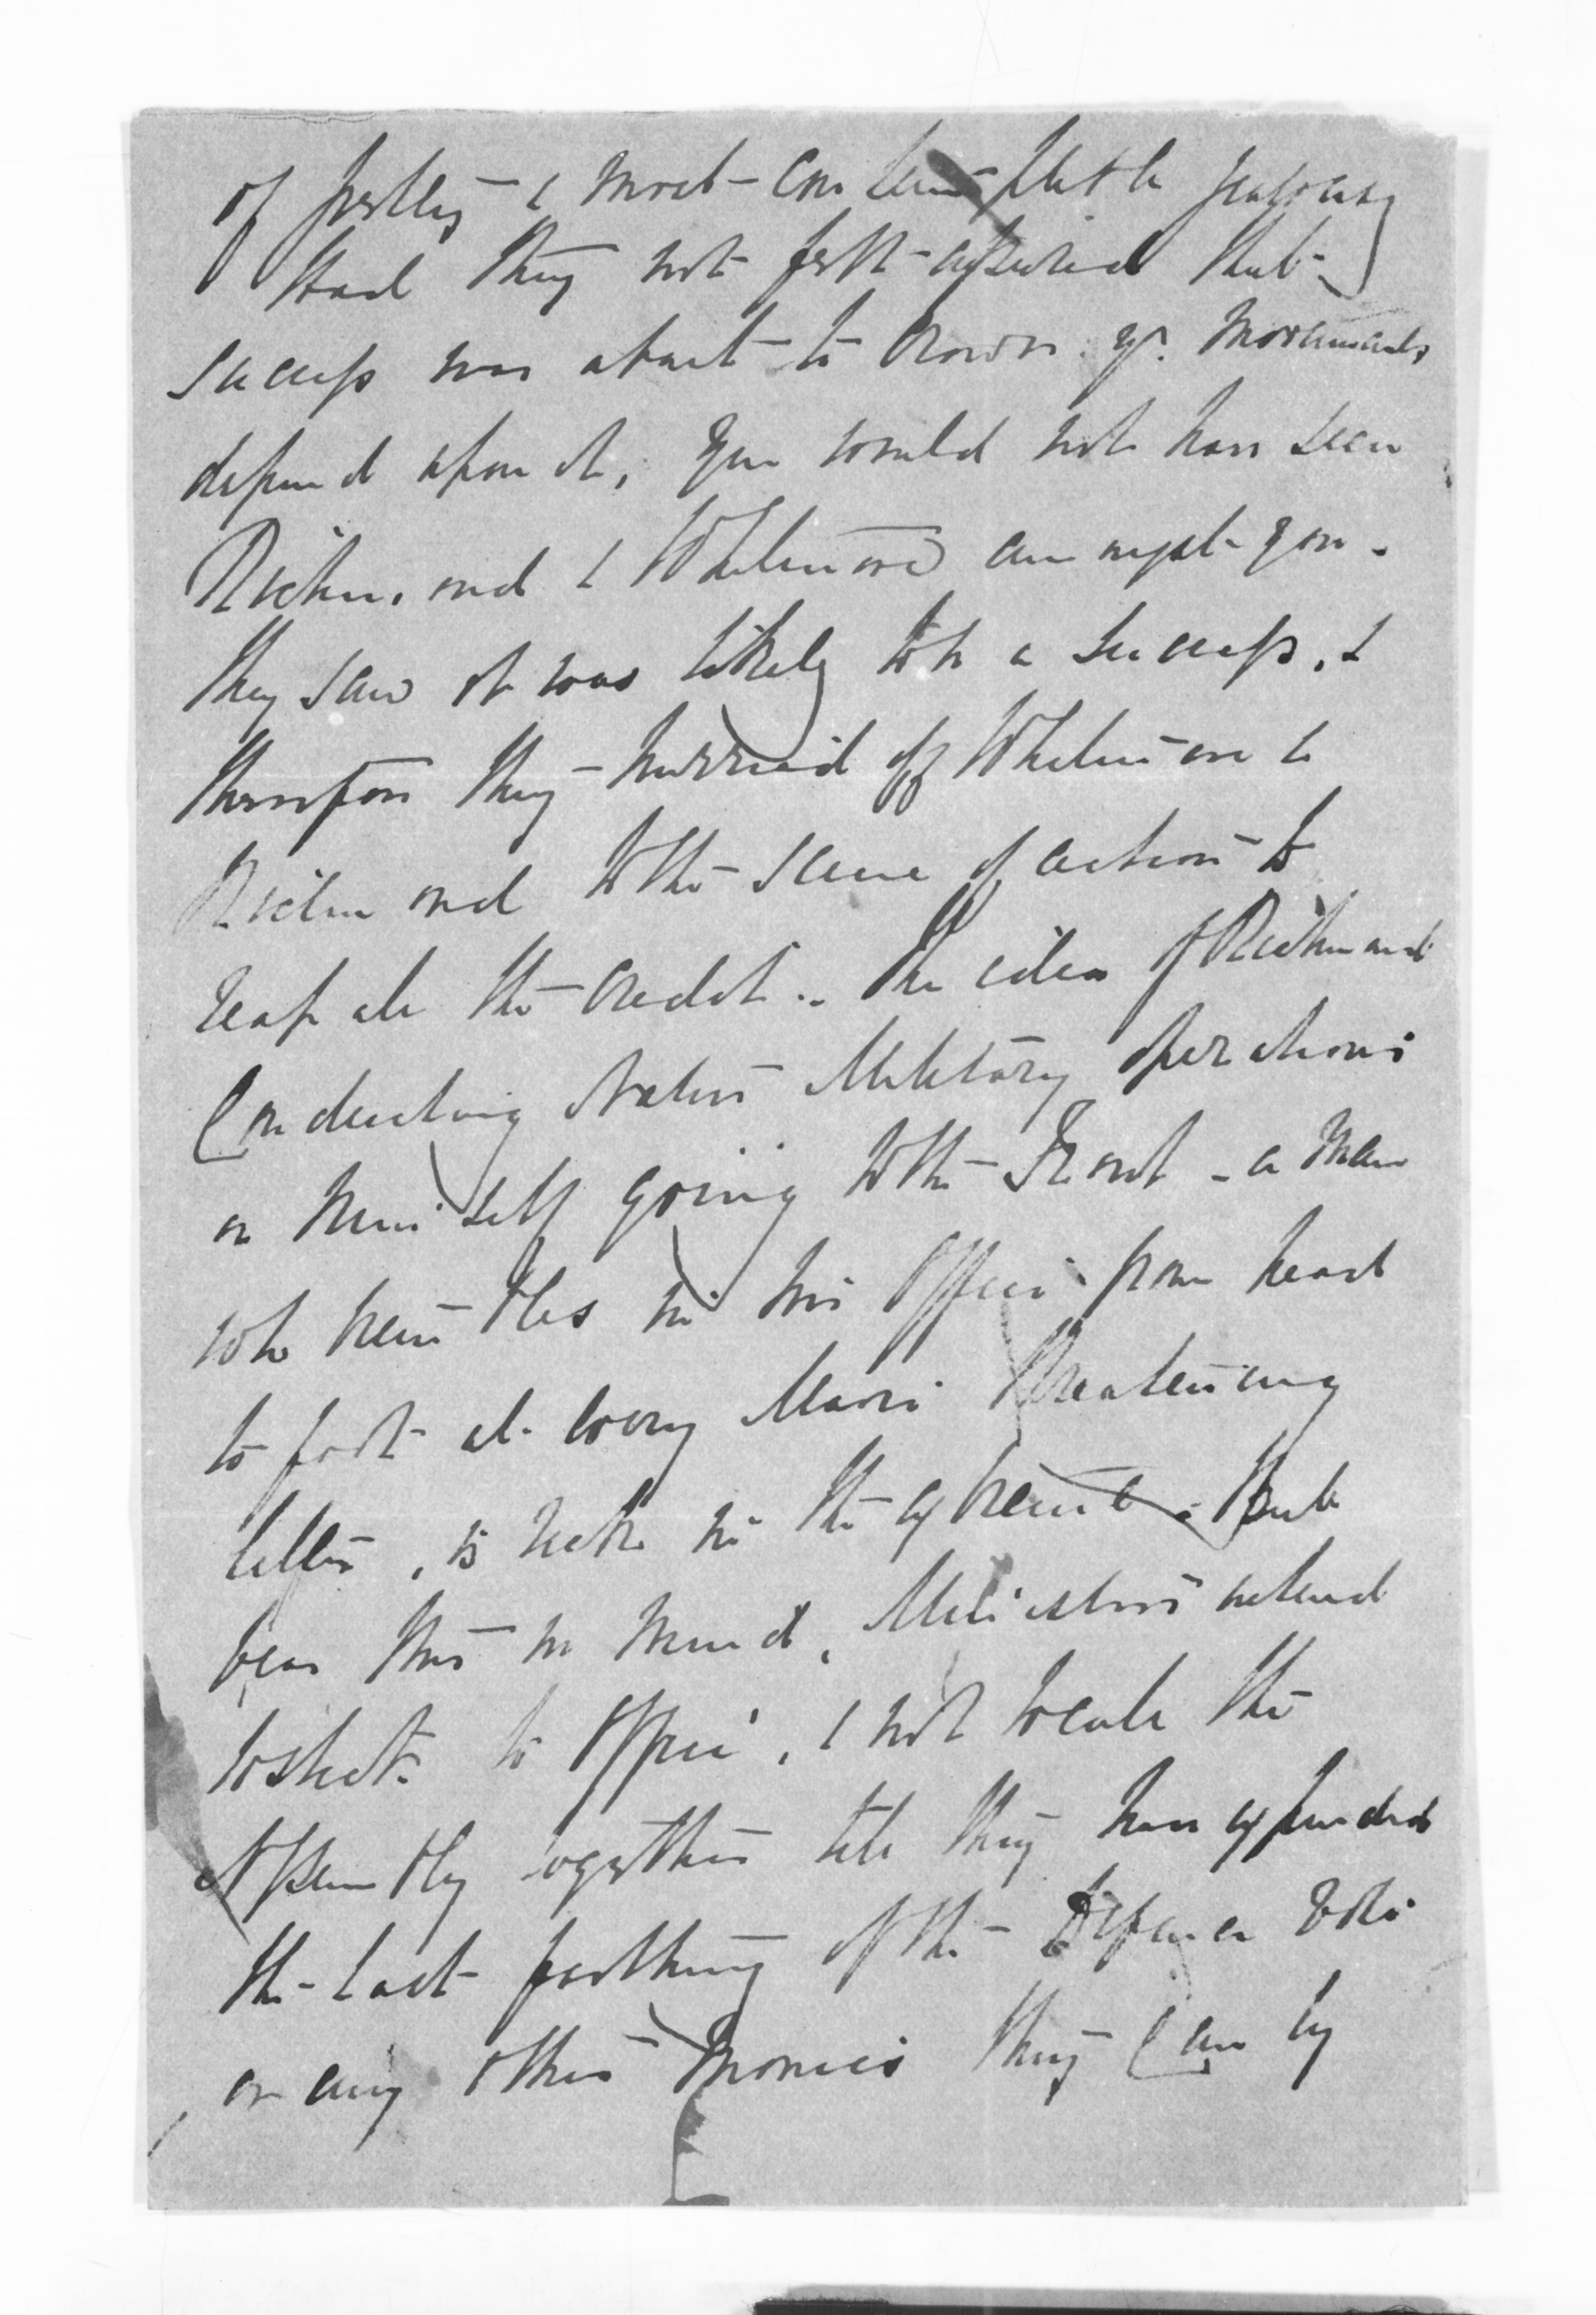 of pettiness & most contemptible jealousy
Had they not felt assured that
success was about to crown yr. movements
depend upon it, you would not have seen
Richmond & Whitmore amongst you.
they saw it was likely to be a success, &
therefore they hurried off Whitmore &
Richmond to the scene of action to
reap all the credit.. The idea of Richmond
Conducting Native Military operations
or himself going to the Front - a man
who trembles in his Office from head
to foot at every Maori threatening
letter, is rich in the extreme. But
bear this in mind, Ministers intend
to stick to Office, & not to call the
Assembly together till they have expended
the last farthing of the Defence vote
or any other monies they can by